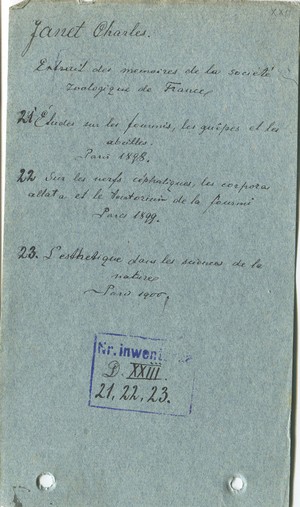 XXII
Janet Charles.
Extrait des memoires de la société
zoologique de France,
21 Études sur les fourmis, les guêpes et les
abeilles.
Paris 1898.
22 Sur les nerfs céphatiques, les corpora
allata et le tentorium de la fourmi
Paris 1899.
23. L'esthétique dans les sciences de la
nature,
Paris 1900,
Nr. inwent
D. XXIII.
21, 22, 23.